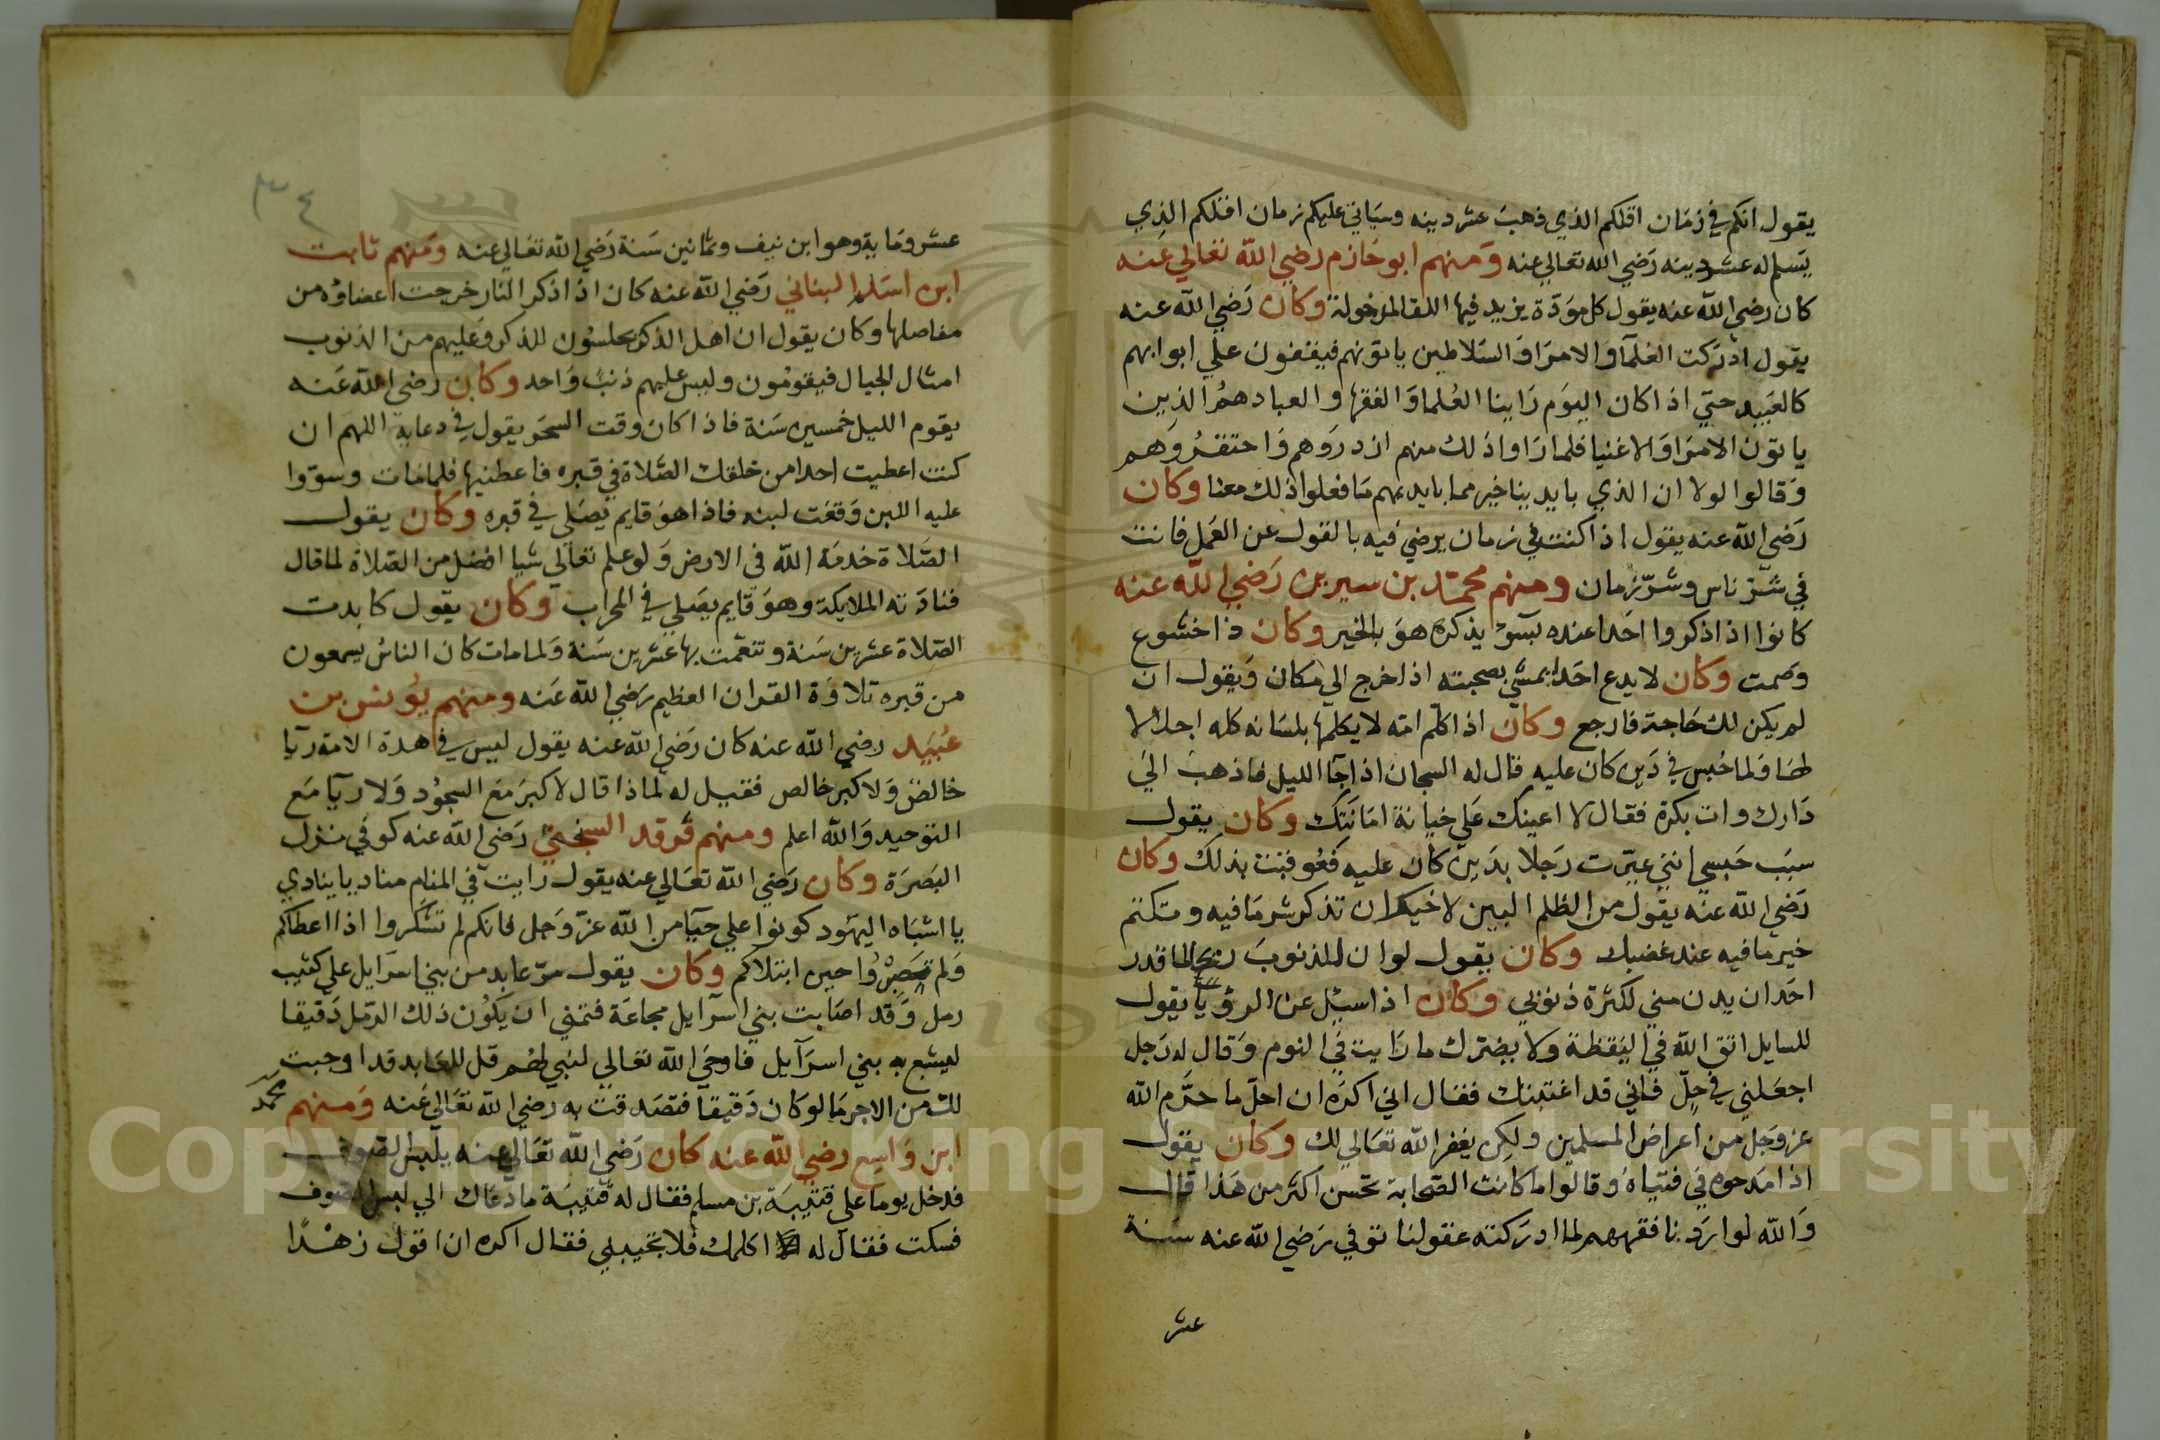 يقول انكم في زمان اقلكم الذي ذهب عشر دينه وسياتي عليكم زمان اقلكم الذي
يسلم له عشر دينه رضي الله تعالي عنه ومنهم ابو حازم رضي الله تعالي عنه
كان رضي الله عنه يقول كل مودة يزيد فيها اللقا لمدخولة وكان رضي الله عنه
يقول ادركت العلمآ والامرا والسلاطين ياتونهم فيقفون علي ابوابهم
كالعبيد حتي اذا كان اليوم راينا العلما والفقها والعباد هم الذين
ياتون الامرا والاغنيا فلما راوا ذلك منهم ازدروهم واحتقروهم
وقالوا لولا ان الذي بايدينا خير مما بايديهم ما فعلوا ذلك معنا وكان
رضي الله عنه يقول اذا كنت في زمان يرضي فيه بالقول عن العمل فانت
في شر ناس وشر زمان ومنهم محمد بن سيرين رضي الله عنه
كانوا اذا ذكروا احدا عنده بسوء يذكره هو بالخير وكان ذا خشوع
وصمت وكان لا يدع احدا يمشي بصحبته اذا خرج الي مكان ويقول ان
لم يكن لك حاجة فارجع وكان اذا كلم امه لا يكلمها بلسانه كله اجلالا
لها ولما حبس في دين كان عليه قال له السجان اذا جآ الليل فاذهب الي
دارك وات بكرة فقال لا اعينك علي خيانة امانتك وكان يقول
سبب حبسي انني عيرت رجلا بدين كان عليه فعوقبت بذلك وكان
رضي الله عنه يقول من الظلم البين لاخيك ان تذكر شر ما فيه وتكتم
خير ما فيه عند غضبك وكان يقول لو ان للذنوب ريحا لما قدر
احد ان يدن مني لكثرة ذنوبي وكان اذا سيل عن الرؤيا يقول
للسايل اتق الله في اليقظة ولا يضرك ما رايت في النوم وقال له رجل
اجعلني في حل فاني قد اغتبتك فقال اني اكره ان احل ما حرم الله
عز وجل من اعراض المسلمين ولكن يغفر الله تعالي لك وكان يقول
اذا مدحوه في فتياه وقالوا ما كانت الصحابة تحسن اكثر من هذا قال
والله لو اردنا فقههم لما ادركته عقولنا توفي رضي الله عنه سنة
عشر
٣٤
عشر وماية وهو ابن نيف وثمانين سنة رضي الله تعالي عنه ومنهم ثابت
ابن اسلم البناني رضي الله عنه كان اذا ذكر النار خرجت اعضاؤه من
مفاصلها وكان يقول ان اهل الذكر يجلسون للذكر وعليهم من الذنوب
امثال الجبال فيقومون وليس عليهم ذنب واحد وكان رضي الله عنه
يقوم الليل خمسين سنة فاذا كان وقت السحر يقول في دعايه اللهم ان
كنت اعطيت احدا من خلقك الصلاة في قبره فاعطنيها فلما مات وسووا
عليه اللبن وقعت لبنه فاذا هو قايم يصلي في قبره وكان يقول
الصلاة خدمة الله في الارض ولو علم تعالي شيا افضل من الصلاة لما قال
فنادته الملايكة وهو قايم يصلي في المحراب وكان يقول كابدت
الصلاة عشرين سنة وتنعمت بها عشرين سنة ولما مات كان الناس يسمعون
من قبره تلاوة القران العظيم رضي الله عنه ومنهم يونس بن
عبيد رضي الله عنه كان رضي الله عنه يقول ليس في هذه الامة ريآ
خالص ولا كبر خالص فقيل له لماذا قال لا كبر مع السجود ولا ريآ مع
التوحيد والله اعلم ومنهم فرقد السبخي رضي الله عنه كوفي نزل
البصرة وكان رضي الله تعالي عنه يقول رايت في المنام مناديا ينادي
يا اشباه اليهود كونوا علي حيآ من الله عز وجل فانكم لم تشكروا اذا اعطاكم
ولم تصبروا حين ابتلاكم وكان يقول مر عابد من بني اسرآيل علي كثيب
رمل وقد اصابت بني اسرآيل مجاعة فتمني ان يكون ذلك الرمل دقيقا
ليشبع به بني اسرآيل فاوحي الله تعالي لنبي لهم قل للعابد قد اوجبت
لك من الاجر ما لو كان دقيقا فتصدقت به رضي الله تعالي عنه ومنهم محمد
ابن واسع رضي الله عنه كان رضي الله تعالي عنه يلبس الصوف
فدخل يوما علي قتيبة بن مسلم فقال له قتيبة ما دعاك الي لبس الصوف
فسكت فقال له اكلمك فلا تجيبني فقال اكره ان اقول زهدا
Copyright © King Saud University